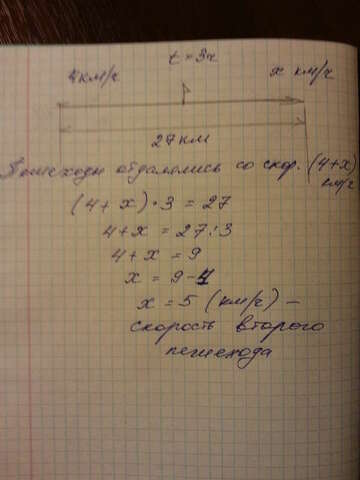 t = 3ч
4 км/ч x км/ч
27 км
Пешеходы отдалялись со скор. (4+x)
км/ч
(4 + x) · 3 = 27
4 + x = 27 : 3
4 + x = 9
x = 9 - 4
x = 5 (км/ч) –
скорость второго
пешехода